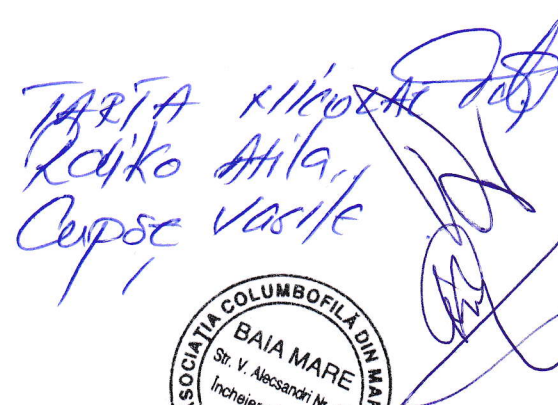 TARȚA NICOLAE
Rdiko Atila,
Cupșe Vasile
ASOCIAȚIA COLUMBOFILĂ DIN MAR
BAIA MARE
Str. V. Alecsandri Nr.